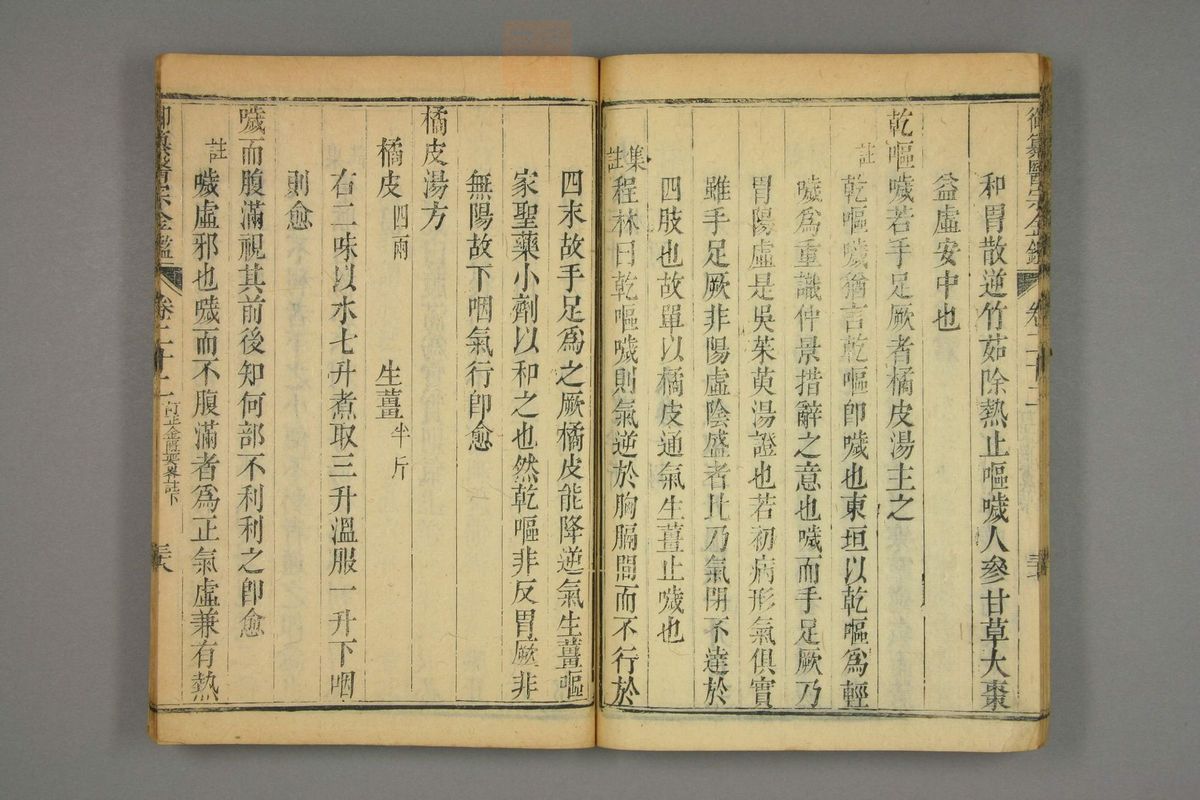 御纂醫宗金鑑 卷二十二
和胃散逆竹茹除熱止嘔噦人參甘草大棗
益虛安中也
乾嘔噦若手足厥者橘皮湯主之
註 乾嘔噦猶言乾嘔即噦也東垣以乾嘔為輕
噦為重識仲景措辭之意也噦而手足厥乃
胃陽虛是吳茱萸湯證也若初病形氣俱實
雖手足厥非陽虛陰盛者比乃氣閉不達於
四肢也故單以橘皮通氣生薑止噦也
集註 程林曰乾嘔噦則氣逆於胸膈間而不行於
四末故手足為之厥橘皮能降逆氣生薑嘔
家聖藥小劑以和之也然乾嘔非反胃厥非
無陽故下咽氣行即愈
橘皮湯方
橘皮四兩 生薑半斤
右二味以水七升煮取三升溫服一升下咽
則愈
噦而腹滿視其前後知何部不利利之即愈
註 噦虛邪也噦而不腹滿者為正氣虛兼有熱
御纂醫宗金鑑 卷二十二 訂正金匱要畧註下 三六